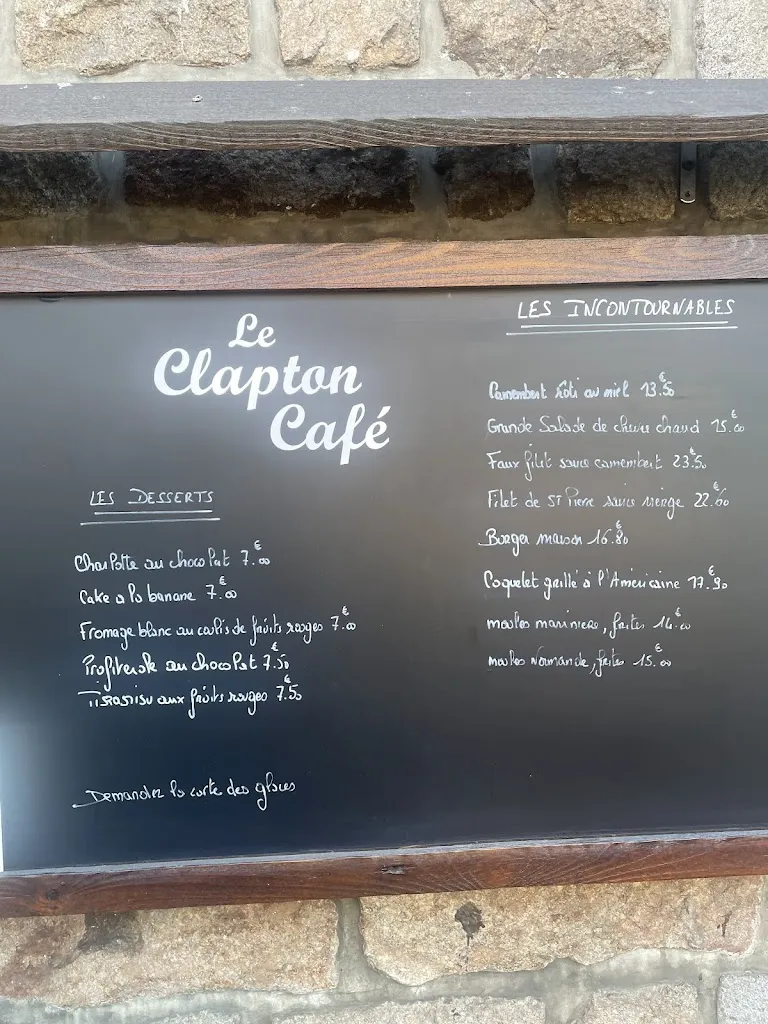 Le
Clapton
Café
LES DESSERTS
Charlotte au chocolat 7.00€
Cake a la banane 7.00€
Fromage blanc au coulis de fruits rouges 7.00€
Profiterole au chocolat 7.50€
Tiramisu aux fruits rouges 7.50€
Demandez la carte des glaces
LES INCONTOURNABLES
Camembert rôti au miel 13.50€
Grande Salade de chèvre chaud 15.00€
Faux filet sauce camembert 23.50€
Filet de St Pierre sauce vierge 22.00€
Burger maison 16.80€
Coquelet grillé à l'Américaine 17.90€
moules marinière, frites 14.00€
moules Normande, frites 15.00€